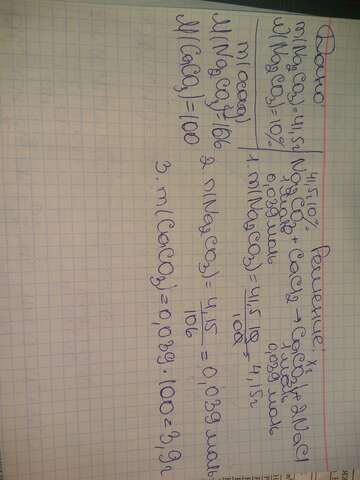 Дано
m(Na2CO3)=41,5г
W(Na2CO3)=10%
m(осадка)
M(Na2CO3)=106
M(CaCO3)=100
Решение:
41,5г.10% xг
Na2CO3 + CaCl2 → CaCO3↓+2NaCl
1моль 1моль
0,039моль 0,039моль
1. m(Na2CO3)=41,5·10/100=4,15г
2 n(Na2CO3)=4,15/106=0,039моль
3. m(CaCO3)=0,039·100=3,9г